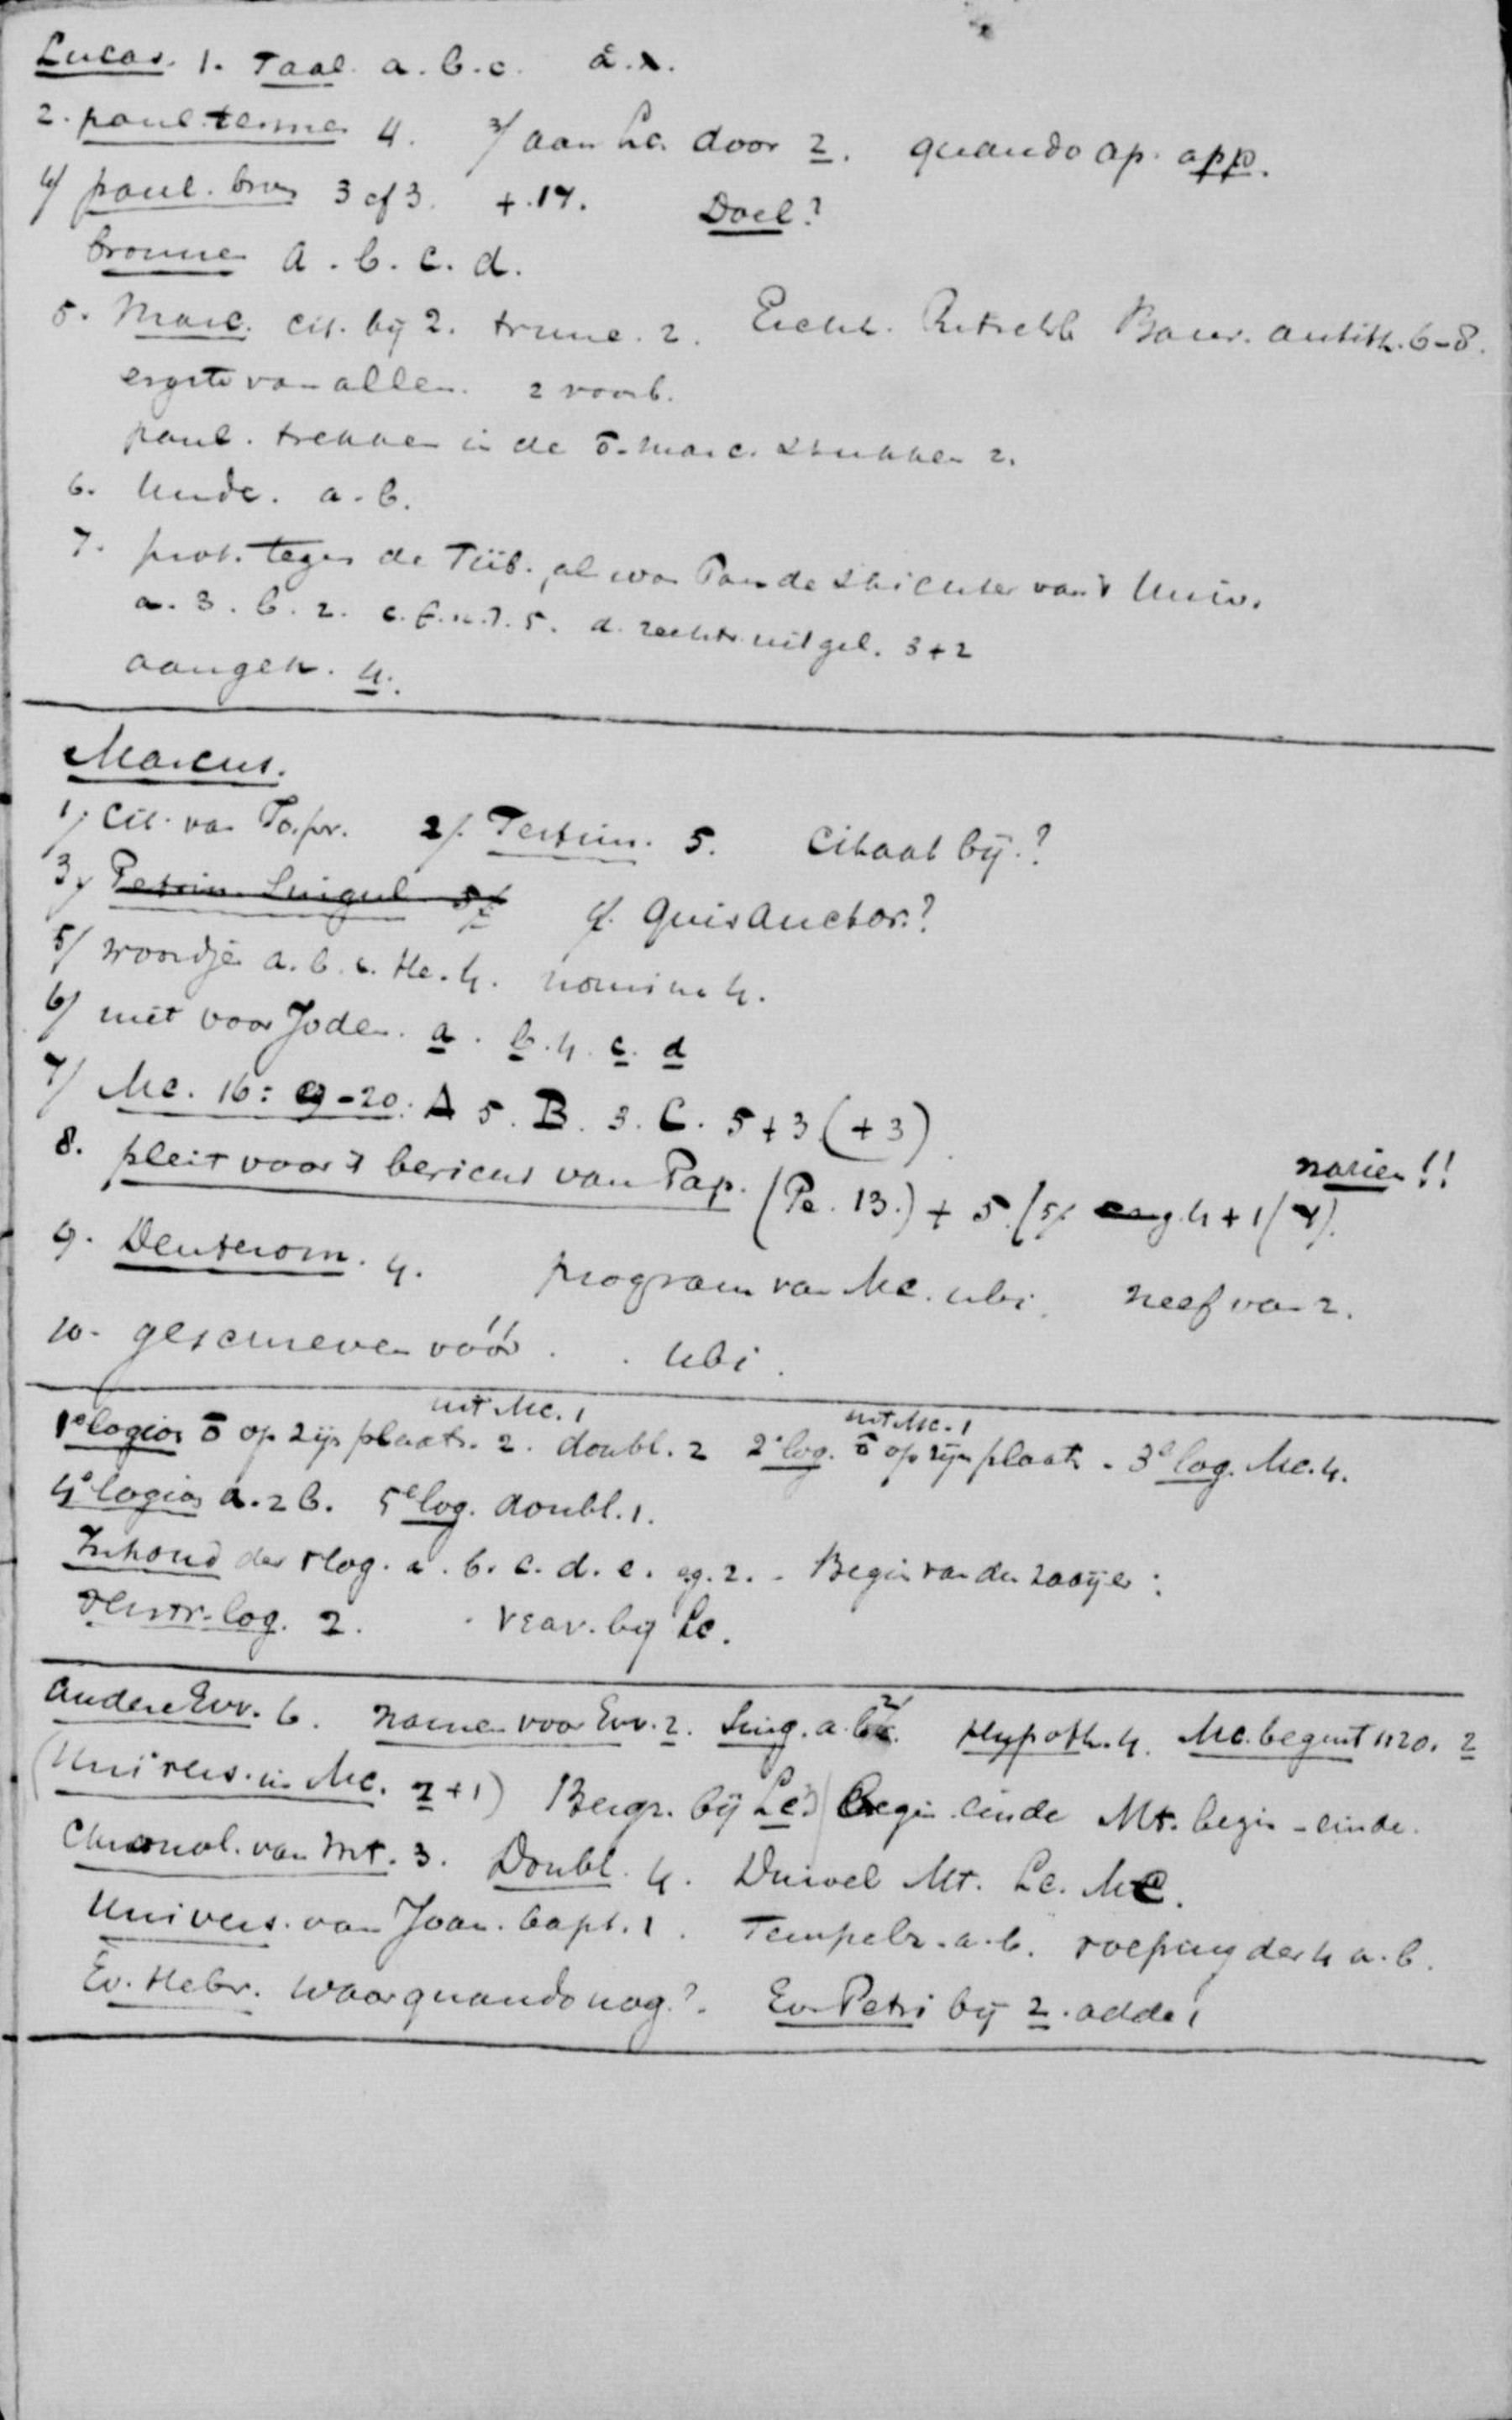 Lucas. 1. Taal. a. b. c. a. x.
2. paul. termen 4. 3/ aan Lc. door 2. quando ap. app.
4/ paul. bron 3 cf 3. + 14. Doel?
bronnen a. b. c. d.
5. Marc. cit. bij 2. trunc. 2. Eichh. Ritschl Baur. antith. 6-8.
ergste van allen. 2 voorb.
paul. trekken in de ō. Marc. stukken 2.
6. Unde. a. b.
7. prot. tegen de Tüb. alwar Pau de stichter van 't Univ.
a. 3. b. 2. c. 5. d. rechts uitgel. 3 + 2
aangeh. 4.
Marcus.
1/ Cit. van Pa. pr. 2/. Testim. 5. Citaat bij.?
3/ Petrin. Singul 4. Quis auctor.?
5/ woordje a. b. c. He. 4. nomina 4.
6/ niet voor Joden. a. b. 4. c. d
7/ Mc. 16: 9-20. A 5. B. 3. C. 5 + 3 (+ 3)
8. pleit voor 't bericht van Pap. (Pe. 13.) + 5. (5/. 4 + 1 (4). nazien!!
9. Deuterom. 4. program van Mc. ubi. neef van 2.
10. geschreven vóór . . ubi.
1e logion ō op zijn plaats. 2. uit Mc. 1 doubl. 2 2e log. ō op zijn plaats uit Mc. 1 - 3e log. Mc. 4.
4e logion a. 2 b. 5e log. doubl. 1.
Inhoud der 5 log. a. b. c. d. e. eg. 2. - Begin van den zaaijer:
Rentr. log. 2. vear. bij Lc.
Andere Evv. 6. namen voor Evv. 2. Sing. a. b. 2/ Hypoth. 4. Mc. begint 1:20. 2
(Univers. in Mc. 2 + 1) Bergr. bij Lc. begin einde Mt. begin - einde.
Chronol. van Mt. 3. Doubl. 4. Duivel Mt. Lc. Mc.
Univers. van Joan. bapt. 1. Tempelr. a. b. roeping der 4 a. b.
Ev. Hebr. waar quando nog?. Ev. Petri bij 2. adde 1